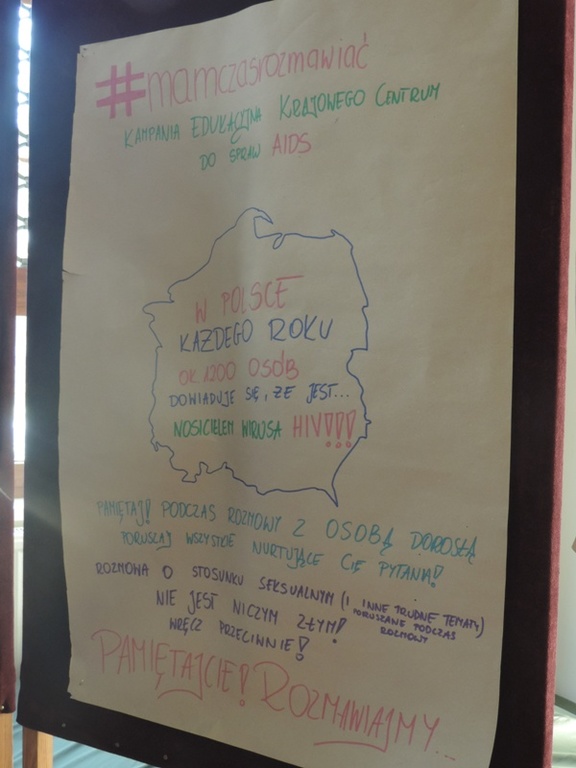 #mamczasrozmawiać
KAMPANIA EDUKACYJNA KRAJOWEGO CENTRUM
DO SPRAW AIDS
W POLSCE
KAŻDEGO ROKU
OK. 1200 OSÓB
DOWIADUJE SIĘ, ŻE JEST...
NOSICIELEM WIRUSA HIV!!!
PAMIĘTAJ! PODCZAS ROZMOWY Z OSOBĄ DOROSŁĄ
PORUSZAJ WSZYSTKIE NURTUJĄCE CIĘ PYTANIA!
ROZMOWA O STOSUNKU SEKSUALNYM (I INNE TRUDNE TEMATY)
PORUSZANE PODCZAS
ROZMOWY
NIE JEST NICZYM ZŁYM!
WRĘCZ PRZECIWNIE!
PAMIĘTAJCIE! ROZMAWIAJMY...